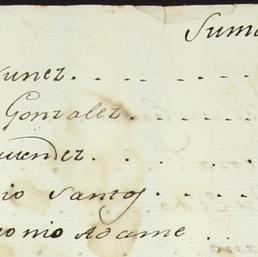 Suma
unez . . . . . .
Gonzalez . . . . .
uendez . . . .
io Santos . . . .
onio Adame . .